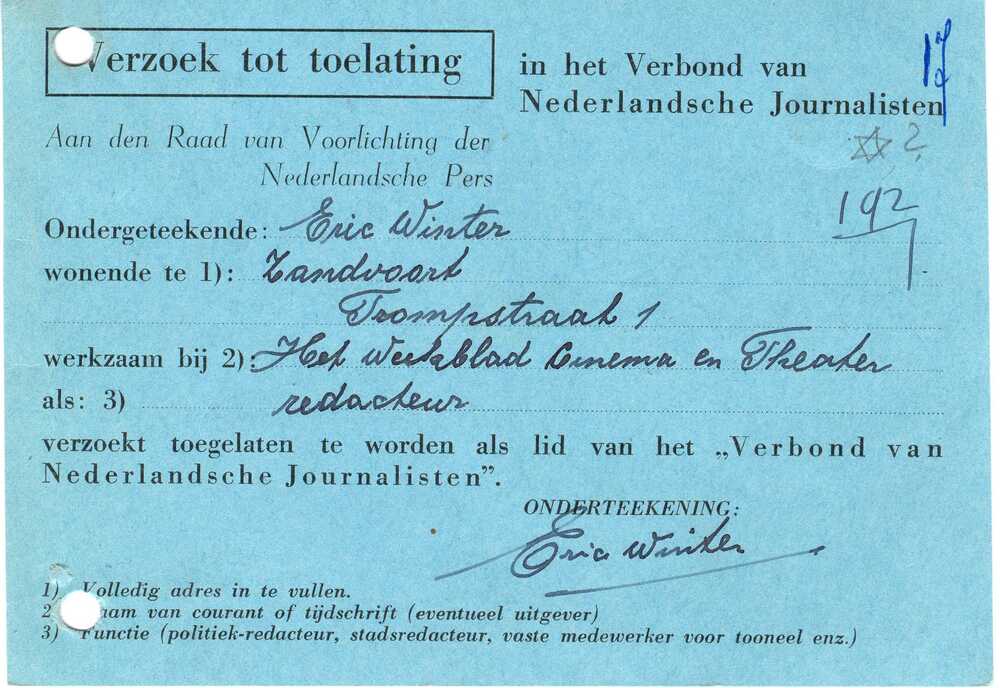 Verzoek tot toelating
in het Verbond van
Nederlandsche Journalisten
Aan den Raad van Voorlichting der
Nederlandsche Pers
?
192
Ondergeteekende: Eric Winter
wonende te 1): Zandvoort
Trompstraat 1
werkzaam bij 2): Het Weekblad Cinema en Theater
als: 3) redacteur
verzoekt toegelaten te worden als lid van het „Verbond van
Nederlandsche Journalisten”.
ONDERTEEKENING:
Eric Winter
1) Volledig adres in te vullen.
2 Naam van courant of tijdschrift (eventueel uitgever)
3) Functie (politiek-redacteur, stadsredacteur, vaste medewerker voor tooneel enz.)